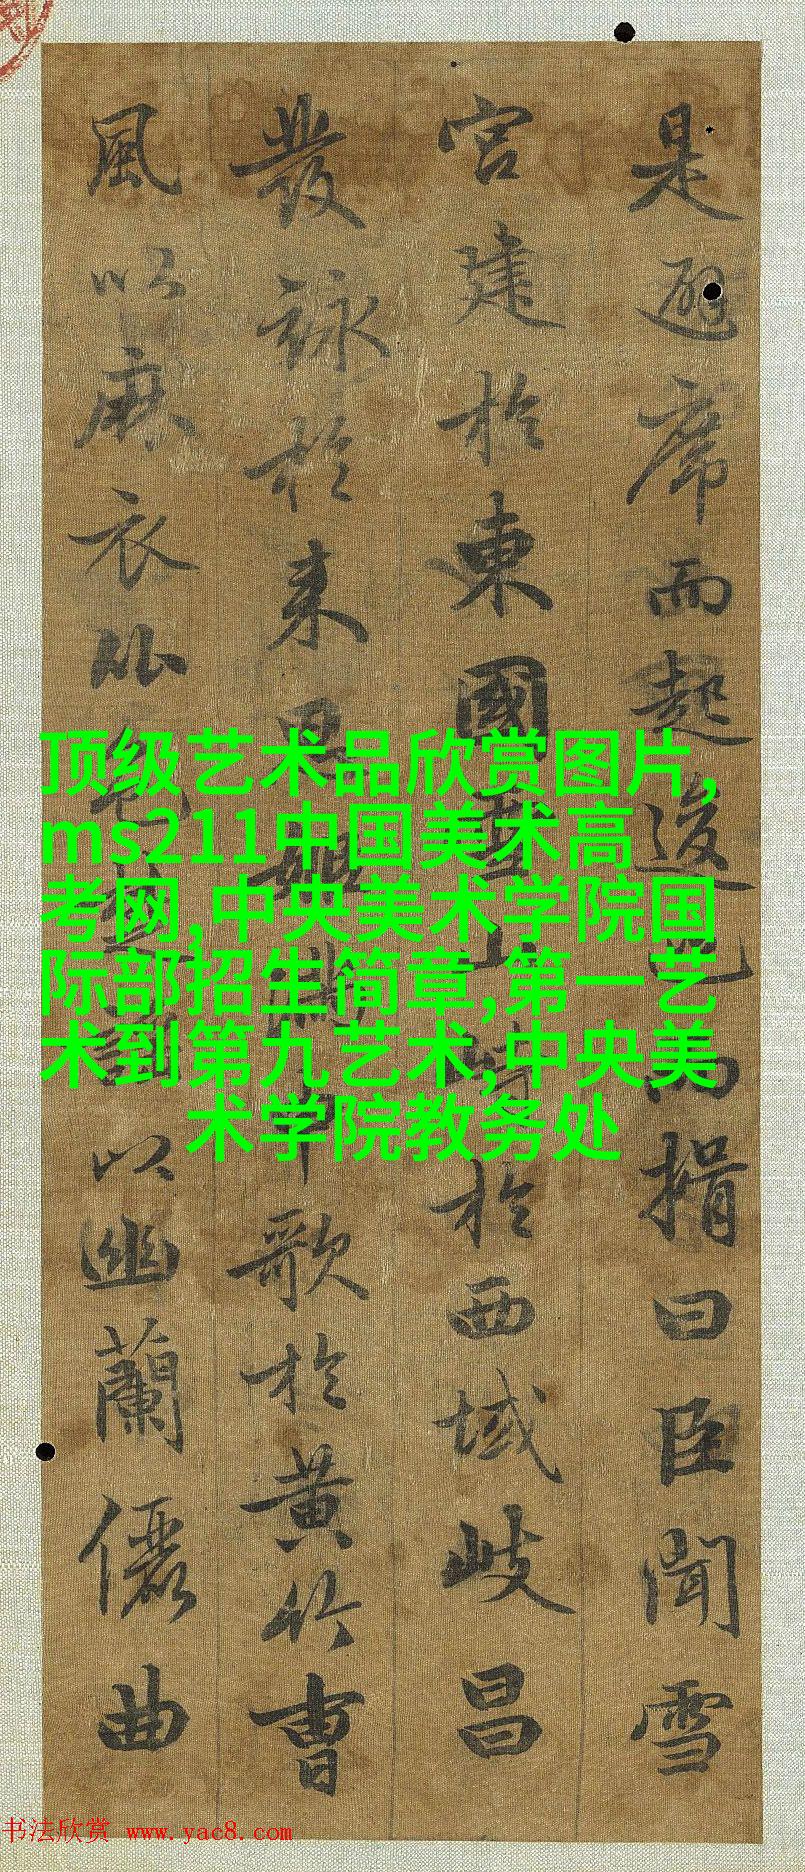 是避席而起逡巡而揖曰臣聞雪
宮建於東國雪山峙於西域岐昌
發詠於来思姬滿申歌於黄竹曹
風以麻衣比色楚謠以幽蘭儷曲
顶级艺术品欣赏图片,
ms211中国美术高
考网,中央美术学院国
际部招生简章,第一艺
术到第九艺术,中央美
术学院教务处
书法欣赏 www.yac8.com